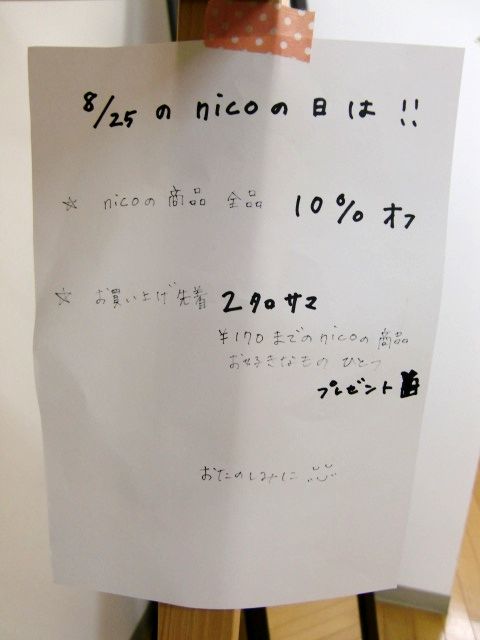 8/25 の nico の 日 は !!
☆ nicoの 商品 全品 10% オフ
☆ お買い上げ先着 2名サマ
¥170までのnicoの商品
お好きなもの ひとつ
プレゼント
おたのしみに